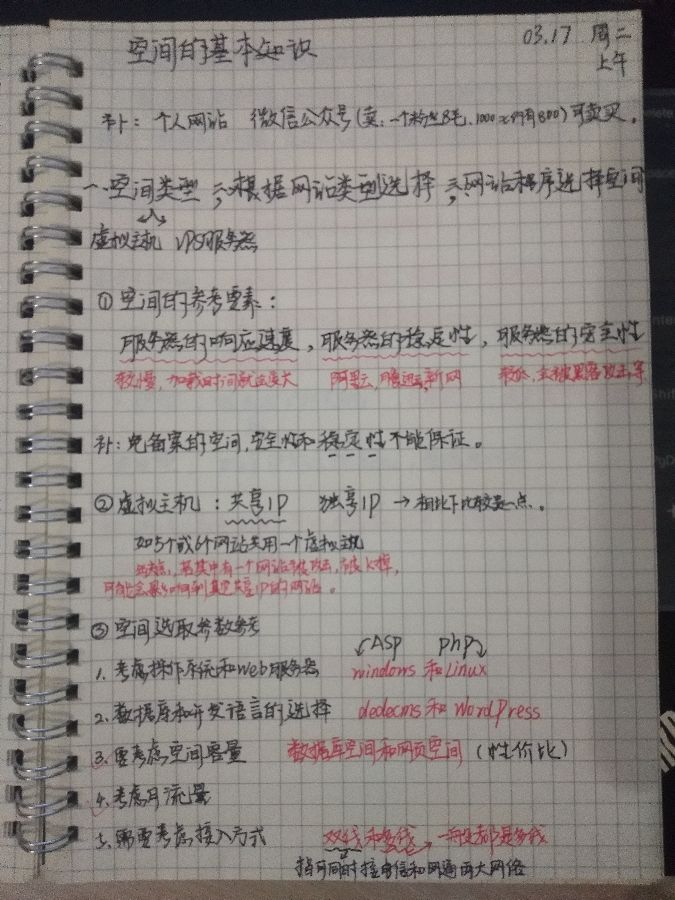 空间的基本知识
03.17 周二
上午
补: 个人网站 微信公众号(卖: 一个粉丝8毛, 1000个约有800)可卖买。
一、空间类型 二、根据网站类型选择 三、网站程序选择空间
虚拟主机 VPS服务器
①空间的参考要素:
服务器的响应速度, 服务器的稳定性, 服务器的安全性
较慢, 加载时间就会变大 阿里云, 腾迅云, 新网 较低, 会被黑客攻击等
补: 免备案的空间, 安全性和稳定性不能保证。
②虚拟主机: 共享IP 独享IP → 相比下比较贵一点。
如5个或6个网站共用一个虚拟主机
缺点, 若其中有一个网站被攻击, 被K掉,
可能会影响到其它共享IP的网站。
③空间选取参数参考
↙ASP php↘
1. 考虑操作系统和Web服务器 windows 和Linux
2. 数据库和开发语言的选择 dedecms和WordPress
3. 要考虑空间容量 数据库空间和网页空间 (性价比)
4. 考虑月流量
5. 需要考虑接入方式 双线和多线→一般都是多线
指可同时接电信和网通两大网络